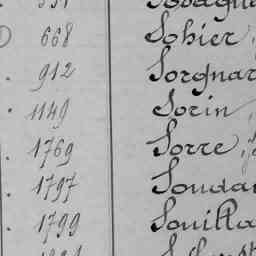 668 Sohier,
912 Sorgnar
1149 Sorin,
1769 Sorre,
1797 Souda
1799 Souilla